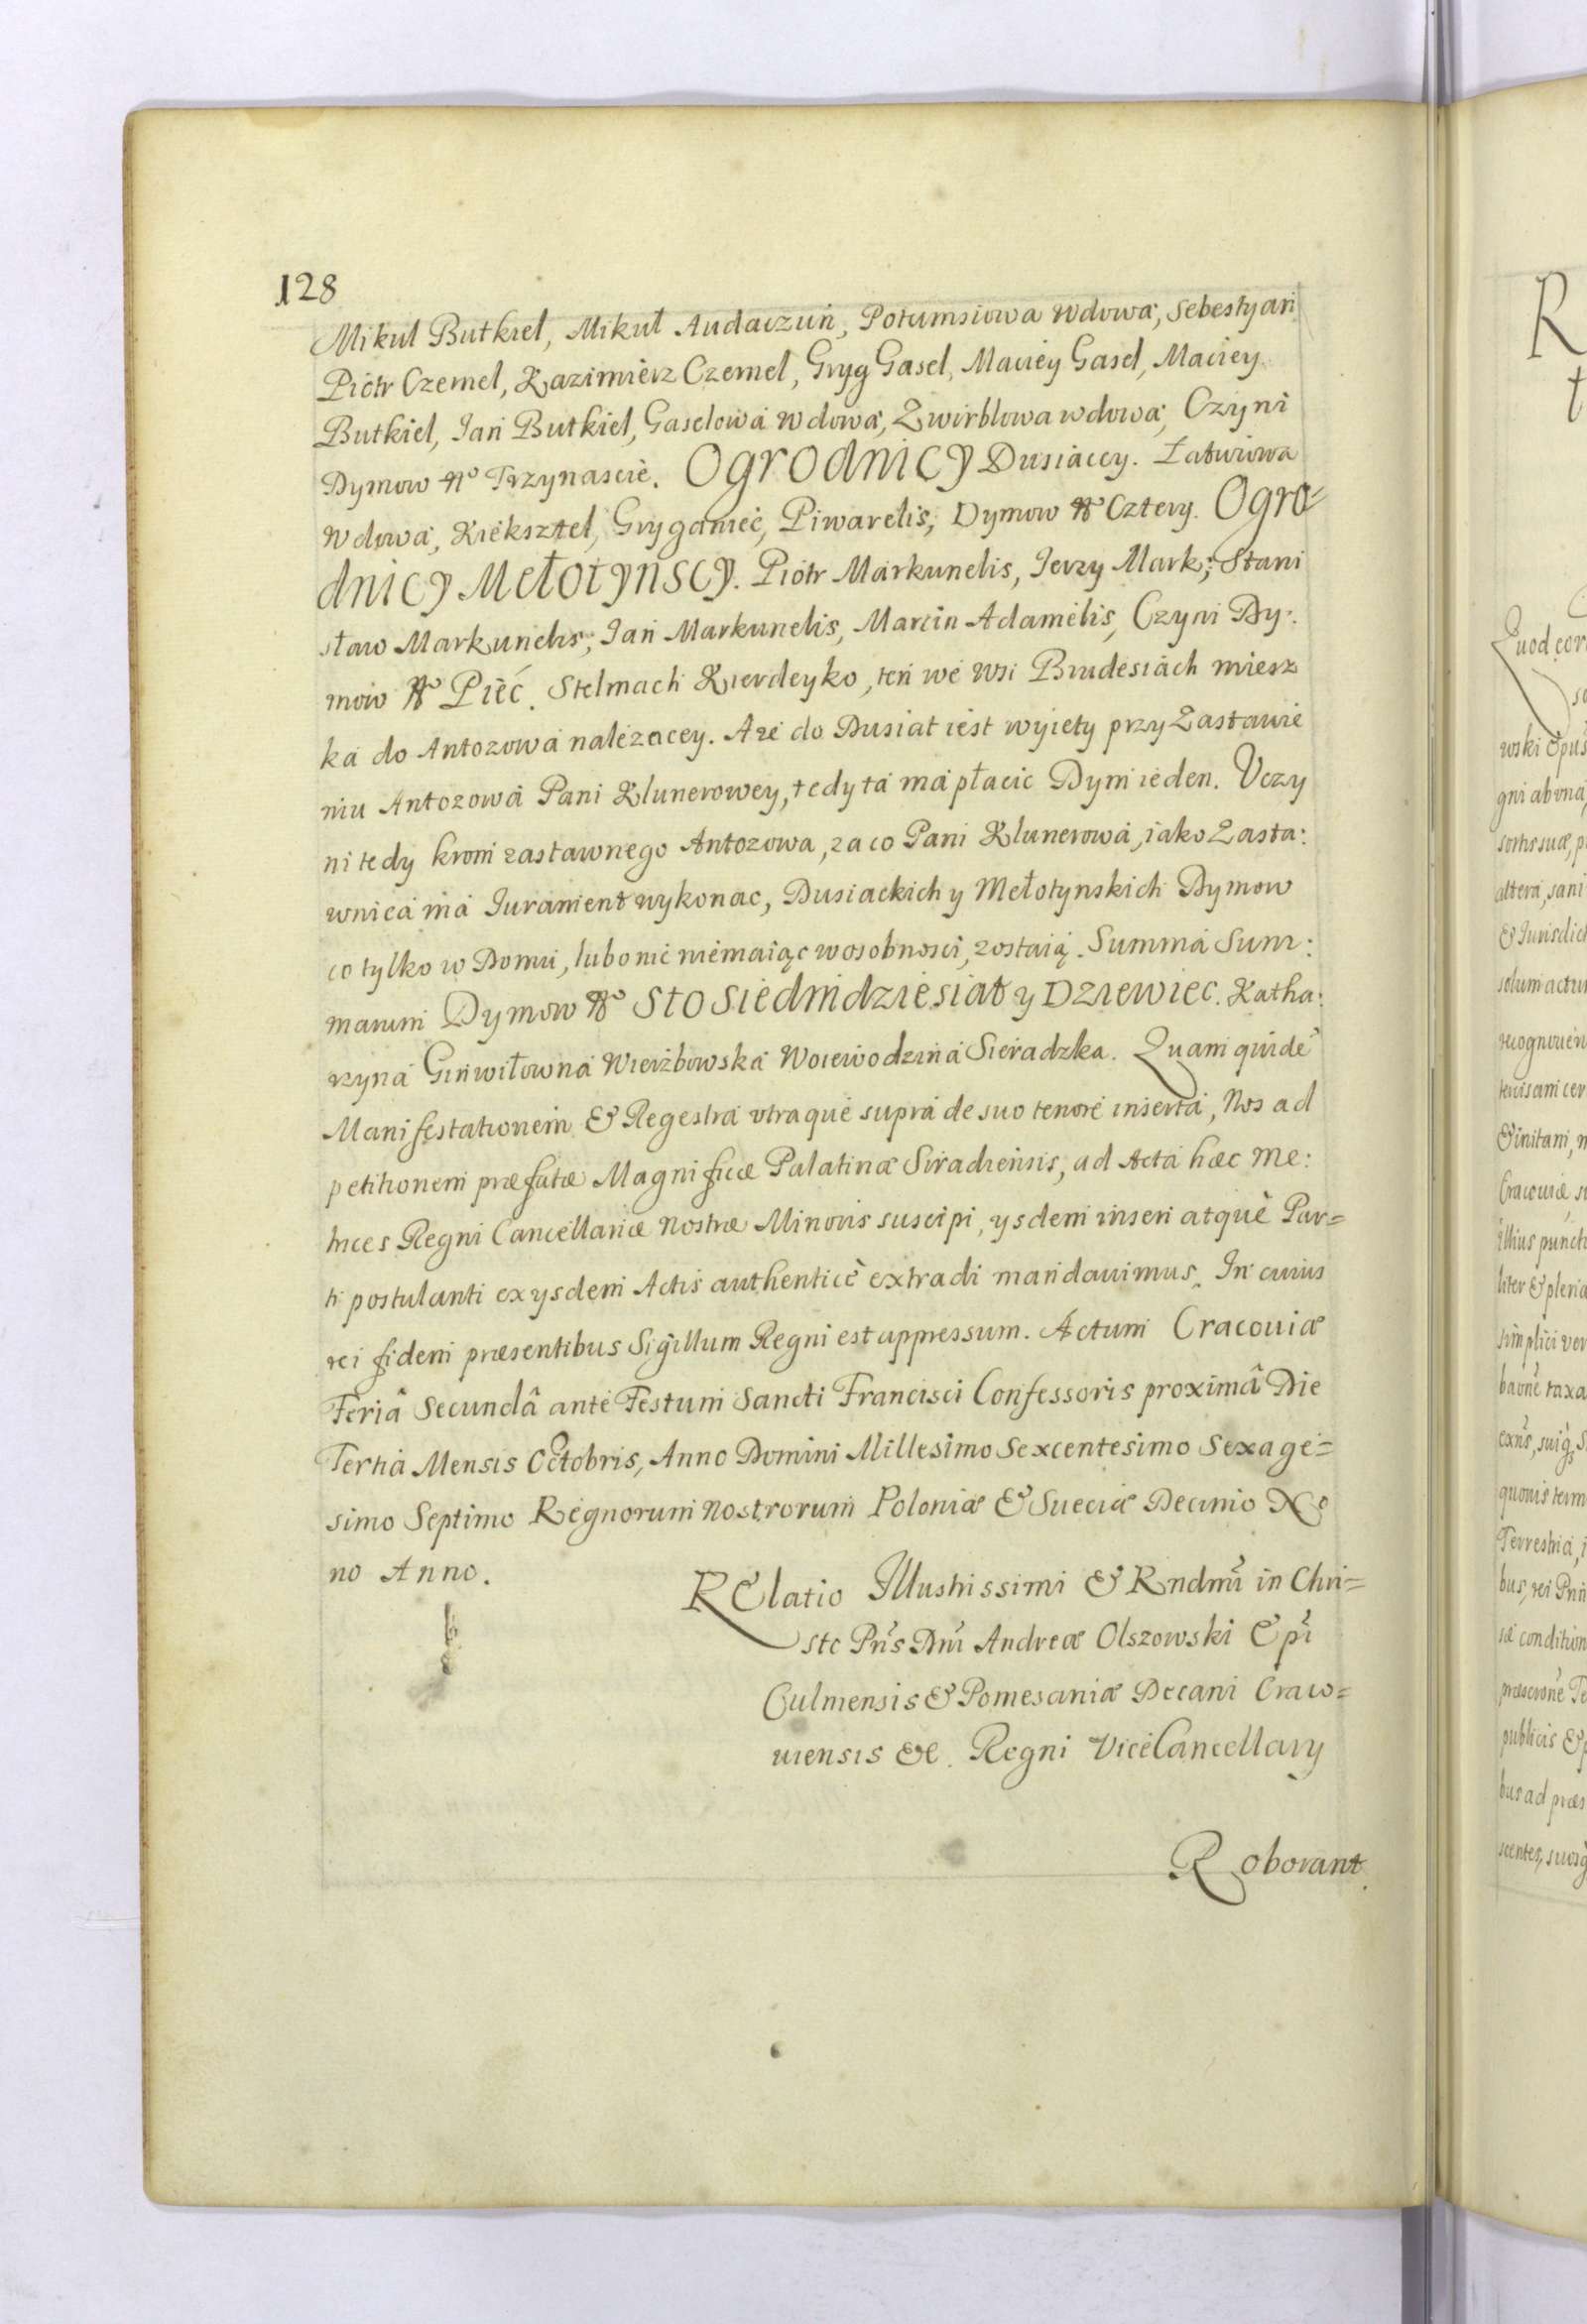 128
Mikul Butkiel, Mikul Audaczun, Potumsiowa wdowa, Sebestyan
Piotr Czemel, Kazimierz Czemel, Gryg Gasel, Maciey Gasel, Maciey
Butkiel, Jan Butkiel, Gaselowa wdowa, Zwirblowa wdowa, Czyni
Dymow No Trzynascie. Ogrodnicy Dusiaccy. Łatwiowa
wdowa, Kieksztel, Gryganiec, Piwarelis, Dymow No Cztery. Ogro=
dnicy Mełotynscy. Piotr Markunelis, Jerzy Mark; Stani
sław Markunelis; Jan Markunelis, Marcin Adamelis, Czyni Dy:
mow No Pięć. Stelmach Kierdeyko, ten we wsi Brudesiach miesz
ka do Antozowa nalezacey. A ze do Dusiat iest wyięty przy Zastawie
niu Antozowa Pani Klunerowey, tedy ta ma płacic Dym ieden. Vczy
ni tedy krom zastawnego Antozowa, za co Pani Klunerowa, iako Zasta:
wnica ma Jurament wykonac, Dusiackich y Mełotynskich Dymow
co tylko w Domu, lubo nic niemaiąc w osobnosci, zostaią. Summa Sum:
marum Dymow No Sto siedmdziesiat y Dziewiec. Katha:
rzyna Ginwiłowna Wierzbowska Woiewodzina Sieradzka. Quam quidē
Manifestationem & Regestra vtraque supra de suo tenore inserta, Nos ad
petitionem præfatæ Magnificæ Palatinæ Siradiensis, ad Acta hæc Me:
trices Regni Cancellariæ Nostræ Minoris suscipi, ysdem inseri atquè Par=
ti postulanti ex ysdem Actis authenticè extradi mandauimus. In cuius
rei fidem præsentibus Sigillum Regni est appressum. Actum Cracouiæ
Feriâ Secundâ ante Festum Sancti Francisci Confessoris proximâ Die
Tertia Mensis Octobris, Anno Domini Millesimo Sexcentesimo Sexage=
simo Septimo Regnorum Nostrorum Poloniæ & Sueciæ Decimo No
no Anno.
Relatio Illustrissimi & Rndmi in Chri=
sto Pris Dni Andreæ Olszowski Epi
Culmensis & Pomesaniæ Decani Craco=
uiensis &c. Regni ViceCancellary
Roborant.